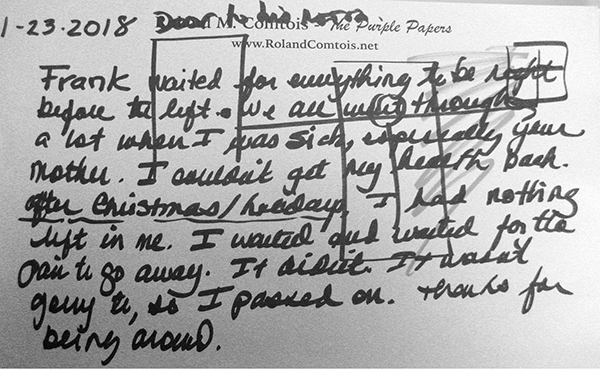 1-23.2018 M. Comtois - The Purple Papers
www.RolandComtois.net
Frank waited for everything to be right
before he left. We all went through
a lot when I was sick, especially your
mother. I couldn't get my health back.
After Christmas/holidays, I had nothing
left in me. I waited and waited for the
pain to go away. It didn't. It wasn't
going to, so I passed on. Thanks for
being around.